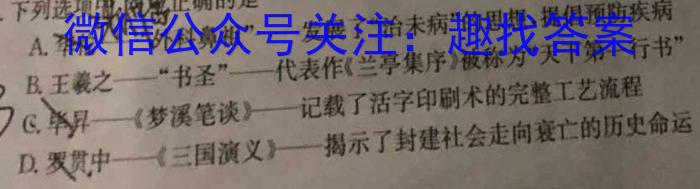 下列选项中,
正确的是
微信公众号关注:趣找答案
A.
发展了“治未病”的思想,提倡预防疾病
B. 王羲之——“书圣”——代表作《兰亭集序》被称为“天下第一行书”
C. 毕昇——《梦溪笔谈》——记载了活字印刷术的完整工艺流程
D. 罗贯中——《三国演义》——揭示了封建社会走向衰亡的历史命运